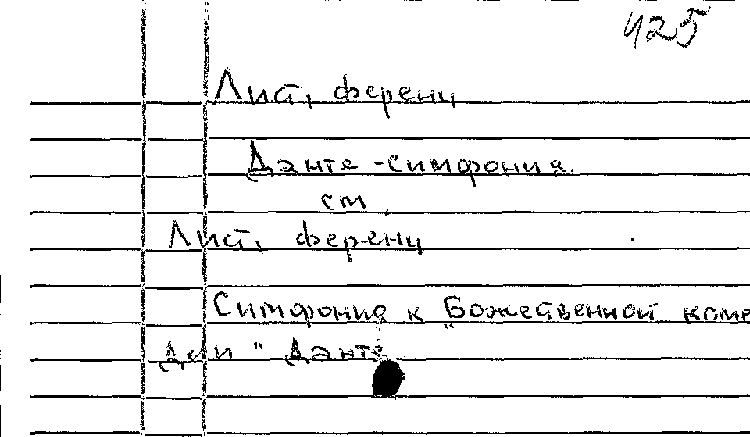 425
Лист, ференц
Данте-симфония.
см.
Лист, ференц
Симфония к "Божественной коме
дии" Данте